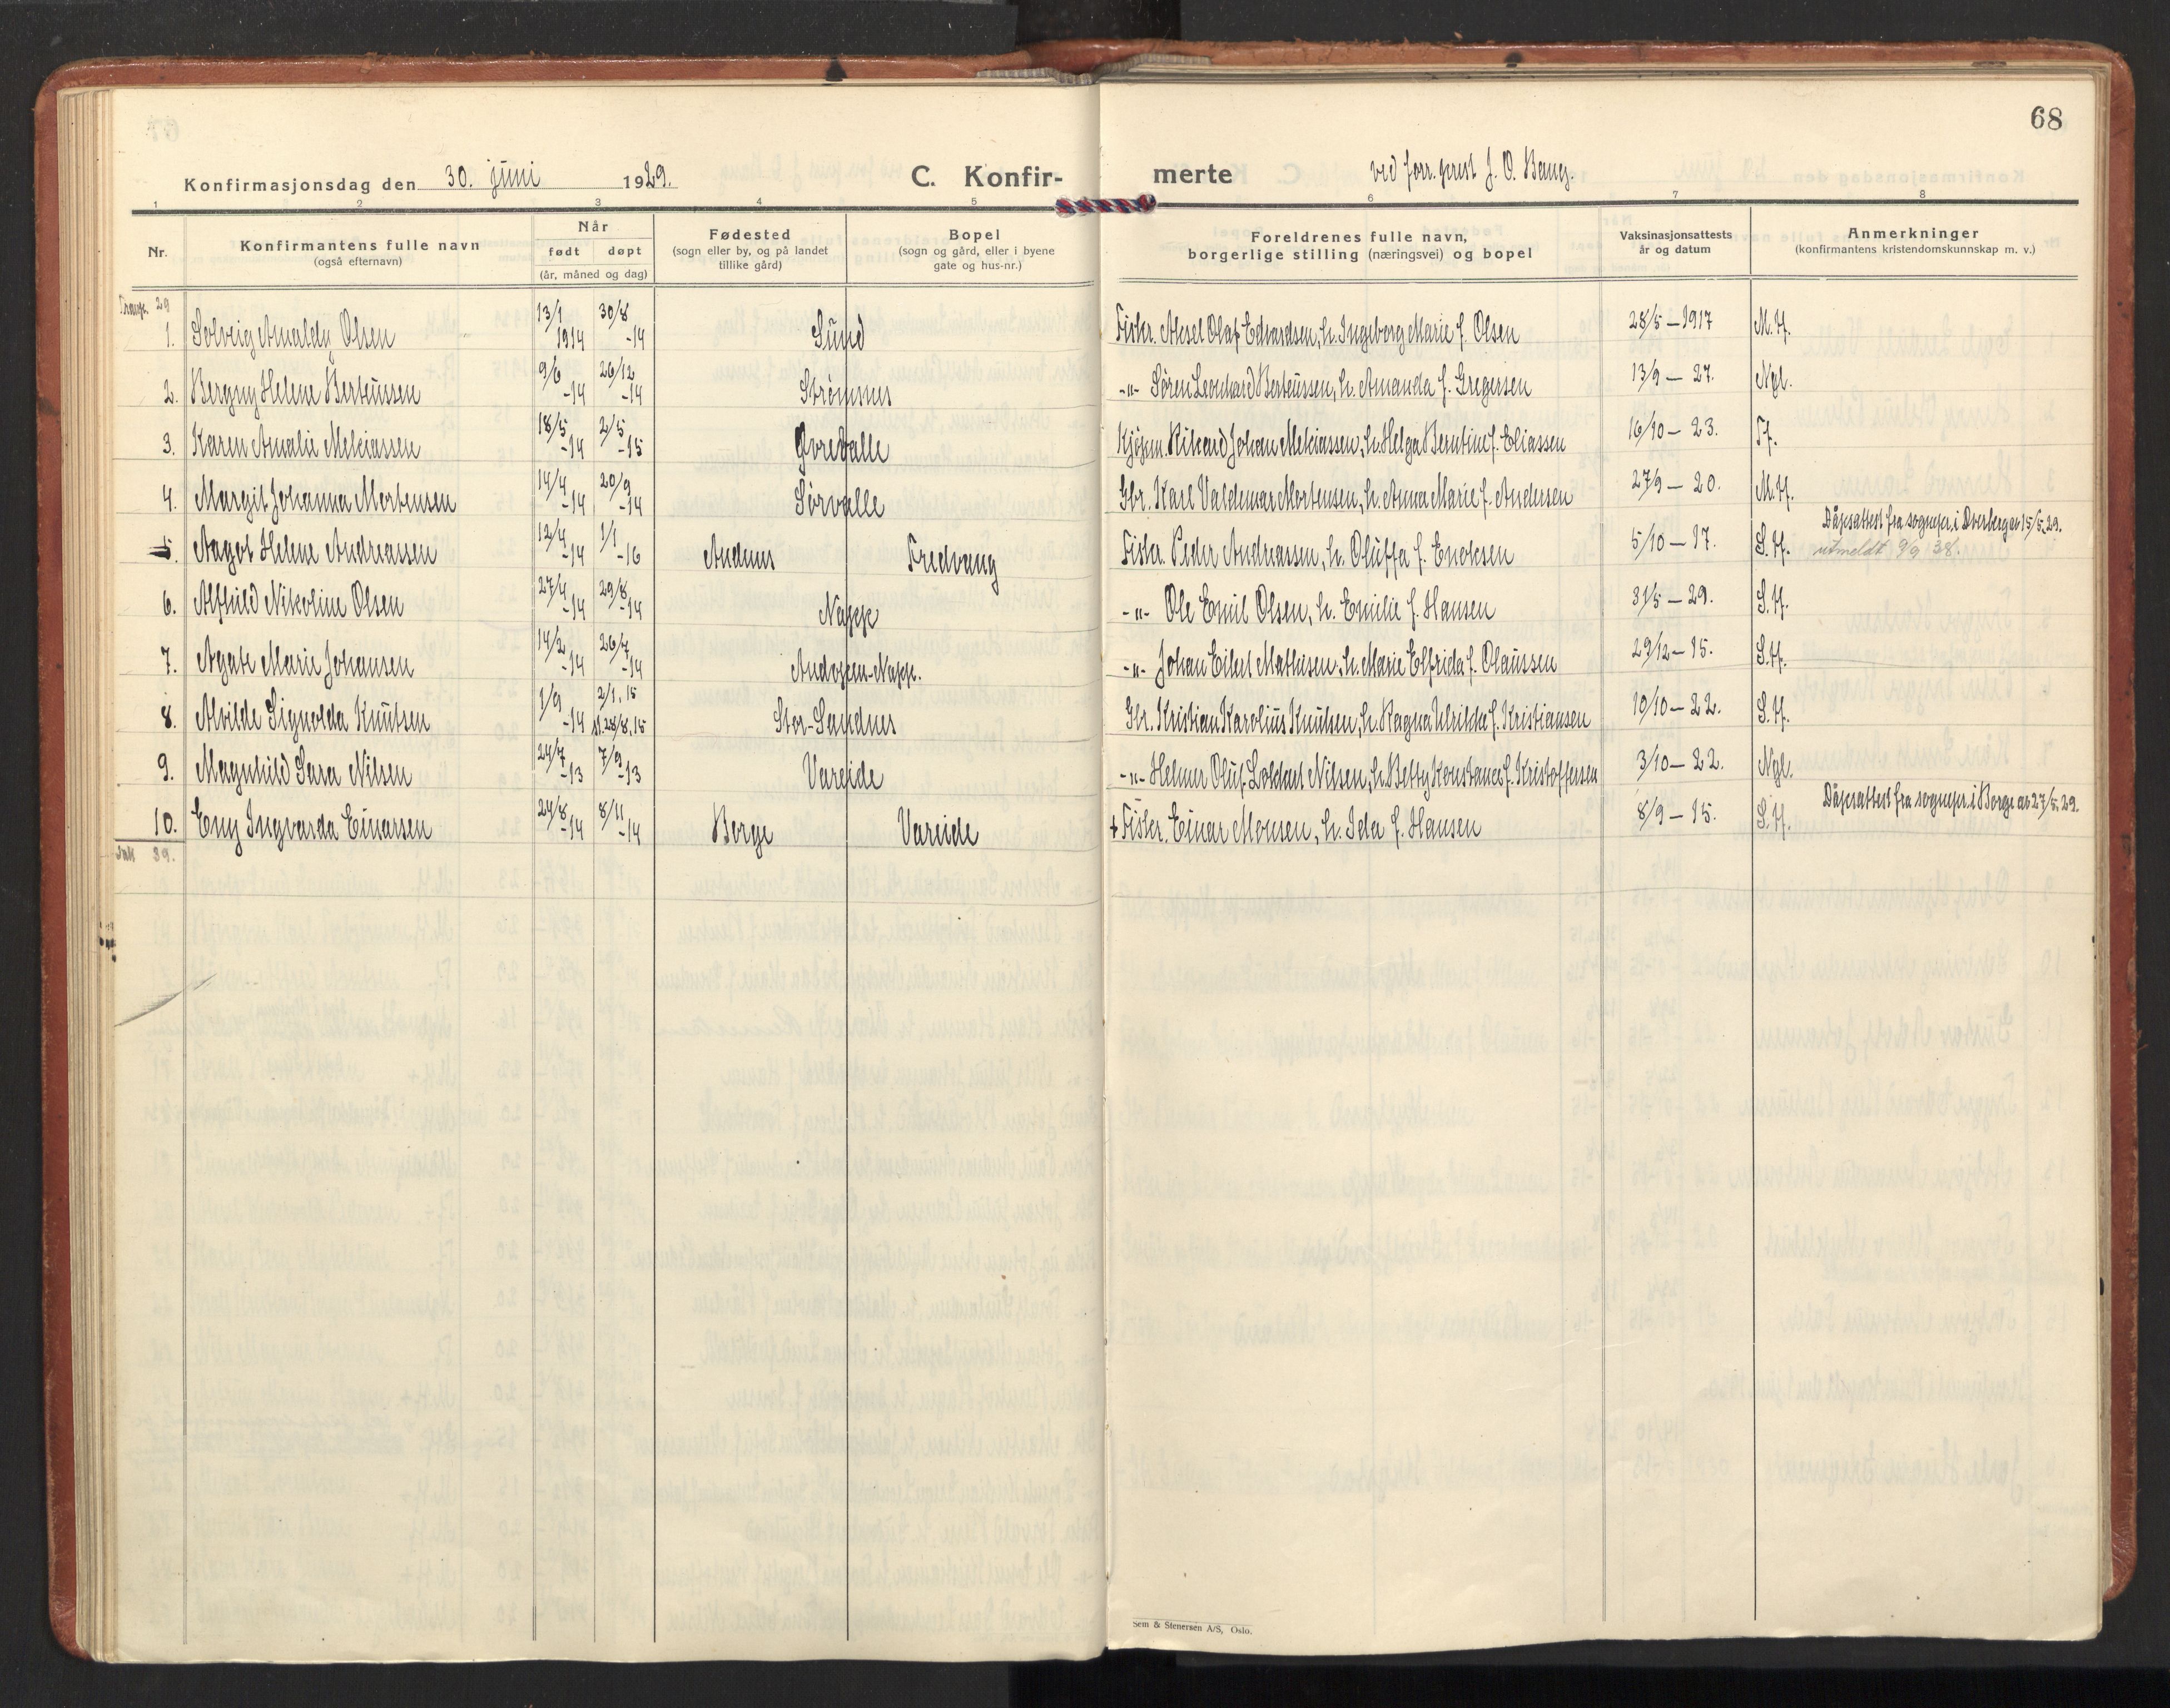 68
Konfirmasjonsdag den 30. juni 1929. C. Konfir- merte ved forr. prest J. O. Bang.
1 2 3 4 5 6 7 8
Nr. Konfirmantens fulle navn (også efternavn) Når født døpt (år, måned og dag) Fødested (sogn eller by, og på landet tillike gård) Bopel (sogn og gård, eller i byene gate og hus-nr.) Foreldrenes fulle navn, borgerlige stilling (næringsvei) og bopel Vaksinasjonsattests år og datum Anmerkninger (konfirmantens kristendomskunnskap m. v.)
29
1. Solveig Amalda Olsen 13/1 1914 30/8 -14 Sund Fisker. Aksel Olaf Edvardsen, h. Ingeborg Marie f. Olsen 28/5 - 1917 M.H.
2. Bergny Helene Berteussen 9/6 -14 26/12 -14 Strømsnes -"- Søren Leonhard Berteussen, h. Amanda f. Gregersen 13/9 - 27. Ngl.
3. Karen Amalie Melciassen 18/5 -14 2/5 -15 Øvredalle Kjøpm. Rikard Johan Melciassen, h. Helga Berntine f. Eliassen 16/10 - 23.
4. Margit Johanna Mortensen 14/4 -14 20/9 -14 Sørvalle Gbr. Karl Valdemar Mortensen, h. Anna Marie f. Andersen 27/9 - 20. M.H.
5. Aagot Helene Andreassen 12/4 -14 1/1 -16 Andnes Fredvang Fisker. Peder Andreassen, h. Oluffa f. Enoksen 5/10 - 17. S.H. Dåpsattest fra sognepr. i Dverberg av 15/5. 29.
utmeldt 9/9 38.
6. Alfhild Nikoline Olsen 27/4 -14 29/8 -14 Napp -"- Ole Emil Olsen, h. Emilie f. Hansen 31/5 - 29. S.H.
7. Agate Marie Johansen 14/2 -14 26/7 -14 Andopen-Napp. -"- Johan Eilert Mathisen, h. Marie Elfrida f. Olaussen 29/12 - 15. S.H.
8. Alvilde Signolda Knutsen 1/9 -14 2/1, 15 st. 28/8, 15 Stor-Sandnes Gbr. Kristian Karolius Knutsen, h. Ragna Ulrikke f. Kristiansen 10/10 - 22. S.H.
9. Magnhild Sara Nilsen 24/7 -13 7/9 -13 Vareide -"- Helmer Oluf Loldart Nilsen, h. Betty Konstance f. Kristoffersen 3/10 - 22. Ngl.
10. Eny Ingvarda Einarsen 24/8 -14 8/11 -14 Borge Vareide + Fisker. Einar Monsen, h. Ida f. Hansen 8/9 - 15. S.H. Dåpsattest fra sognepr. i Borge av 27/5. 29.
39.
Sem & Stenersen A/S, Oslo.